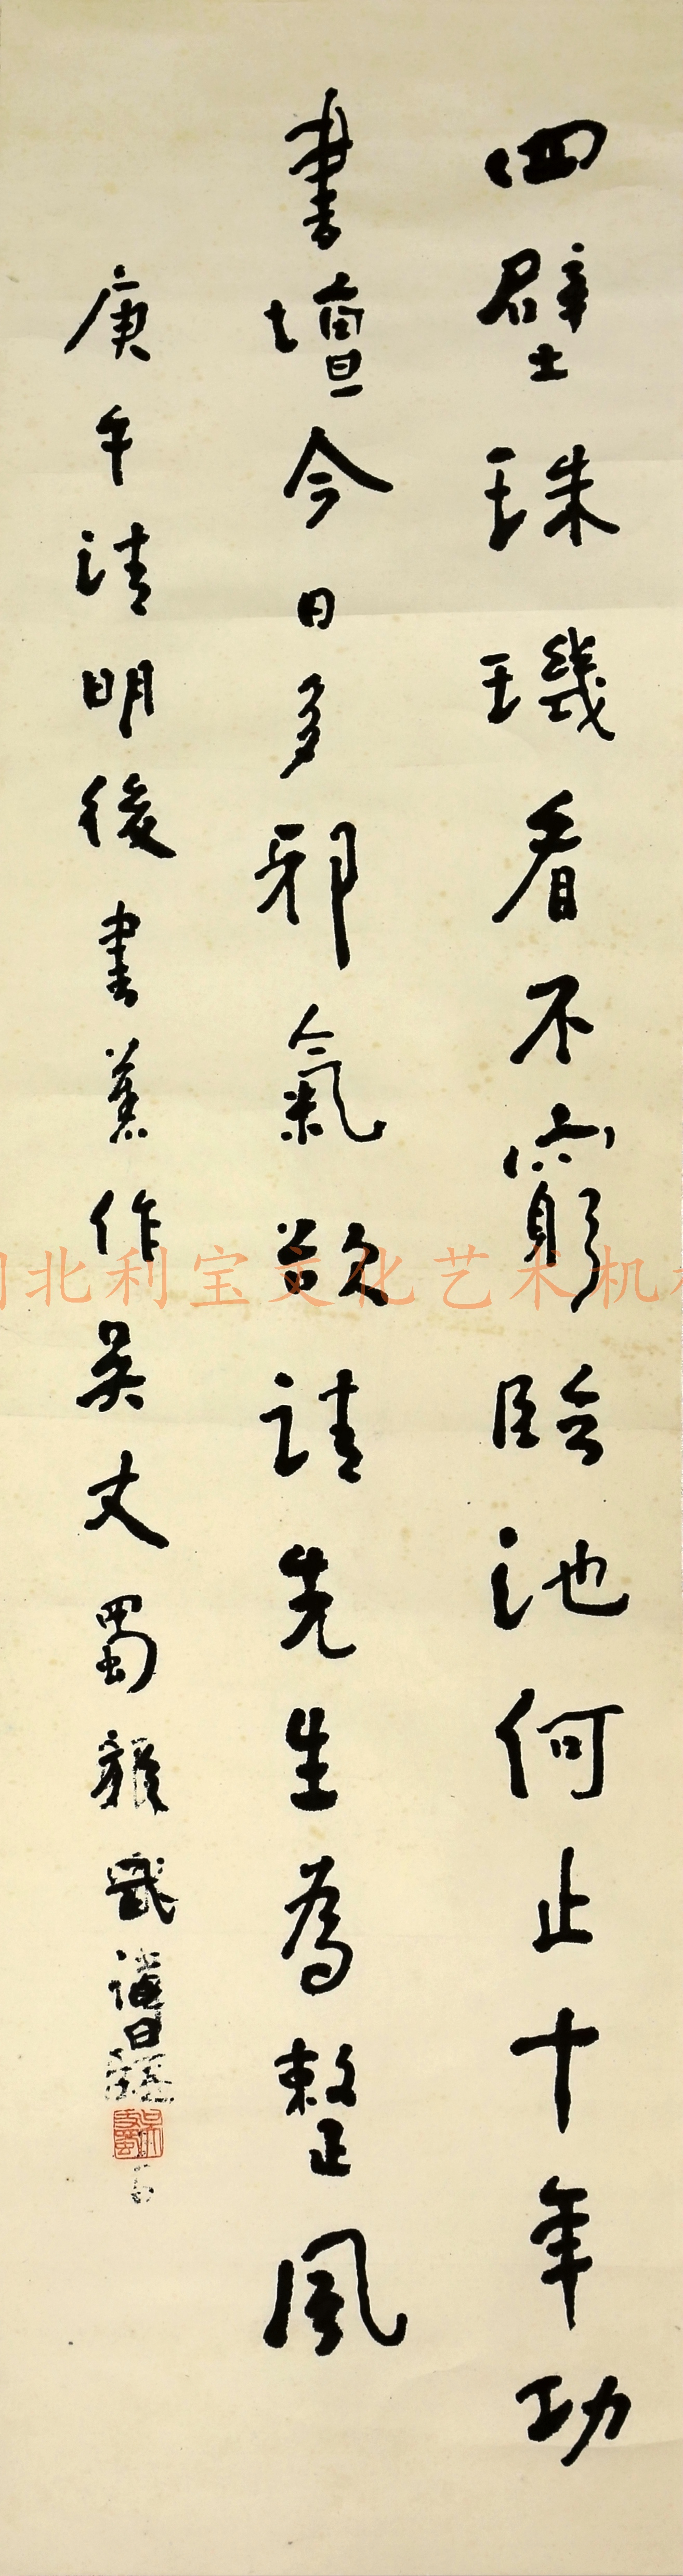 四壁珠璣看不窮臨池何止十年功
書壇今日多邪氣欲請先生為整風
庚午清明後書舊作吳丈蜀
北利宝文化艺术机